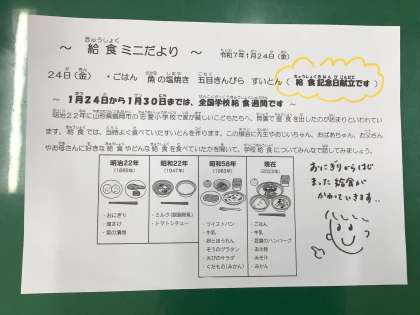 ～ 給食ミニだより ～ 令和7年1月24日(金)
24日(金) ・ごはん 魚の塩焼き 五目きんぴら すいとん( 給食記念日献立です )
～ 1月24日から1月30日までは、全国学校給食週間です ～
明治22年に山形県鶴岡市の忠愛小学校で家が貧しいこどもたちへ、無償で昼食を出したのが始まりといわれてい
ます。給食では、当時よく食べていたすいとんを作ります。この機会に先生やおじいちゃん、おばあちゃん、お父さん
やお母さんに好きな給食やどんな給食を食べていたかを聞いて、学校給食についてみんなで話してみましょう。
明治22年 昭和22年 昭和58年 現在
(1889年) (1947年) (1983年) (2023年)
・おにぎり ・ミルク(脱脂粉乳) ・ツイストパン ・ごはん
・塩さけ ・トマトシチュー ・牛乳 ・牛乳
・菜の漬物 ・卵とほうれん ・豆腐のハンバーグ
そうのグラタン
・えびのサラダ ・みそ汁
・くだもの(みかん) ・みかん
おにぎりからはじ
まった給食が
かわっていきます。